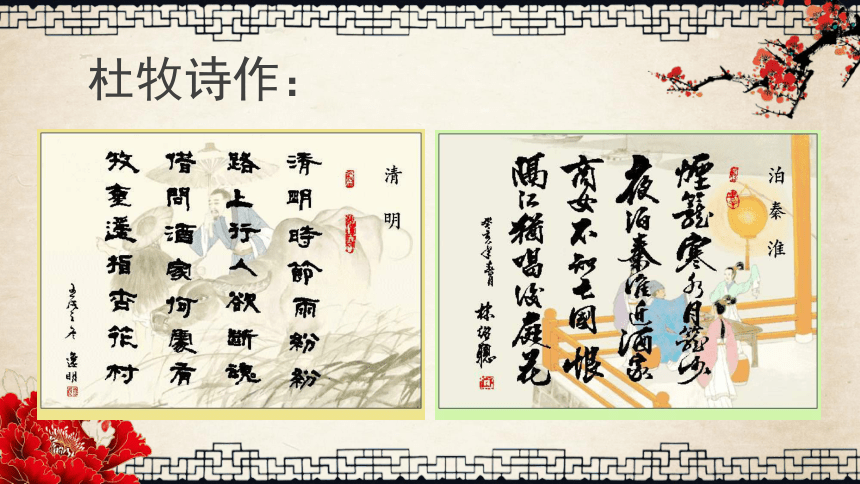 杜牧诗作：
清明
清明時節雨紛紛
路上行人欲斷魂
借問酒家何處有
牧童遥指杏花村
泊秦淮
煙籠寒水月籠沙
夜泊秦淮近酒家
商女不知亡國恨
隔江猶唱後庭花